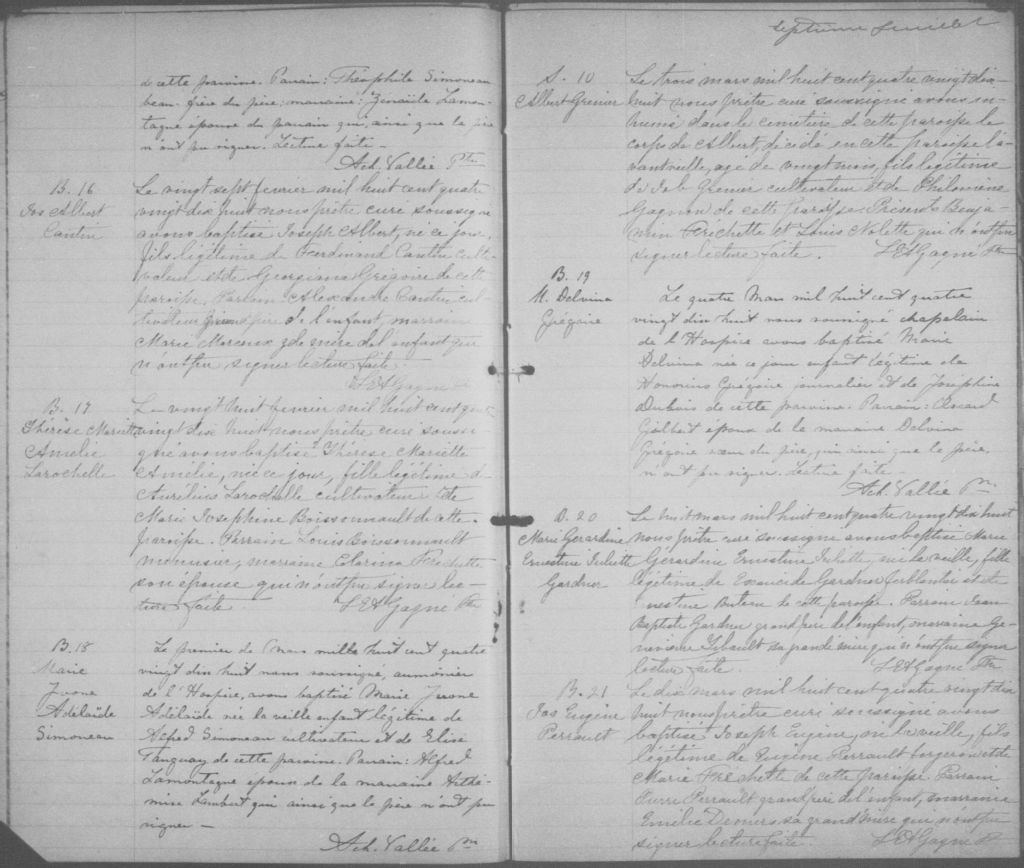 de cette paroisse. Parrain: Théophile Simoneau
beau-frère du père; marraine: Zénaïde Lamon-
tagne épouse du parrain qui, ainsi que le père
n'ont pu signer. Lecture faite -
Ach. Vallée Ptre
B. 16
Jos Albert
Cantin
Le vingt sept fevrier mil huit cent quatre
vingt dix huit nous prêtre curé soussigné
avons baptisé Joseph Albert, né ce jour,
fils légitime de Ferdinand Cantin culti-
vateur et de Georgiana Grégoire de cette
paroisse. Parrain Alexandre Cantin cul
tivateur grand père de l'enfant, marraine
Marie Merceux gde mère de l'enfant qui
n'ont pu signer lecture faite.
L E A Gagné
B. 17
Thérèse Mariette
Amélie
Larochelle
Le vingt huit fevrier mil huit cent quatre
vingt dix huit nous prêtre curé soussi
gné avons baptisé Thérèse Mariette
Amélie, née ce jour, fille légitime d'
Aurélius Larochelle cultivateur et de
Marie Josephine Boissonnault de cette
paroisse. Parrain Louis Boissonnault
menuisier, marraine Clarina Frechette
son épouse qui n'ont pu signer lec-
ture faite. L E A Gagné Ptre
B. 18
Marie
Yvone
Adélaïde
Simoneau
Le premier de Mars mille huit cent quatre
vingt dix huit nous soussigné, aumonier
de l'Hospice, avons baptisé Marie Yvone
Adélaïde née la veille enfant légitime de
Alfred Simoneau cultivateur et de Elise
Tanguay de cette paroisse. Parrain: Alfred
Lamontagne époux de la marraine Arthé-
mise Lambert qui ainsi que le père n'ont pu
signer -
Ach. Vallée Ptre
septieme feuillet
S. 10
Albert Grenier
Le trois mars mil huit cent quatre vingt dix
huit nous prêtre curé soussigné avons in-
humé dans le cimetière de cette paroisse le
corps de Albert, décédé en cette paroisse l'a-
vant veille, agé de vingt mois, fils légitime
de Job Grenier cultivateur et de Philomène
Gagnon de cette paroisse. Présents Benja-
min Frechette et Louis Nolette qui n'ont pu
signer lecture faite. L E A Gagné Ptre
B. 19
M. Delvina
Grégoire
Le quatre Mars mil huit cent quatre
vingt dix huit nous soussigné chapelain
de l'Hospice avons baptisé Marie
Delvina née ce jour enfant légitime de
Honorius Grégoire journalier et de Josephine
Dubois de cette paroisse. Parrain:
Gilbert époux de la marraine Delvina
Grégoire sœur du père, qui ainsi que le père,
n'ont pu signer. Lecture faite.
Ach. Vallée Ptre
B. 20
Marie Gerardine
Ernestine Juliette
Gardner
Le huit mars mil huit cent quatre vingt dix huit
nous prêtre curé soussigné avons baptisé Marie
Gérardine Ernestine Juliette, née la veille, fille
légitime de Gardner ferblantier et de
Buteau de cette paroisse. Parrain Jean
Baptiste Gardner grand père de l'enfant, marraine Ge-
nevieve Gibault sa grande mère qui n'ont pu signer
lecture faite. L E A Gagné Ptre
B. 21
Jos Eugène
Perrault
Le dix mars mil huit cent quatre vingt dix
huit nous prêtre curé soussigné avons
baptisé Joseph Eugène, né la veille, fils
légitime de Eugène Perrault forgeron et de
Marie Fréchette de cette paroisse. Parrain
Pierre Perrault grand père de l'enfant, marraine
Emélie Demers sa grand mère qui n'ont pu
signer lecture faite. L E A Gagné Ptre